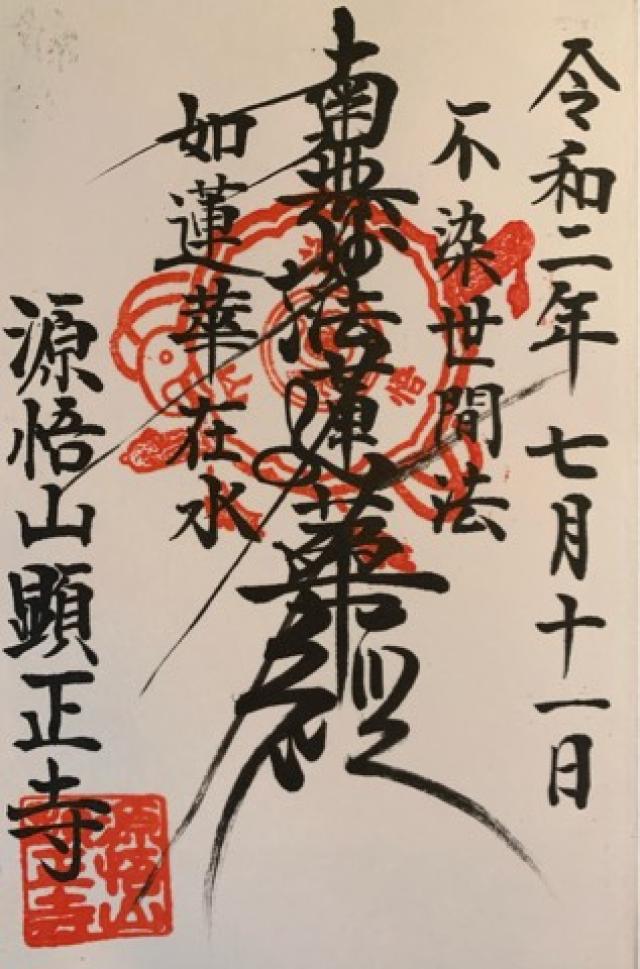 令和二年 七月十一日
不染世間法
南無妙法蓮華経
如蓮華在水
源悟山顕正寺